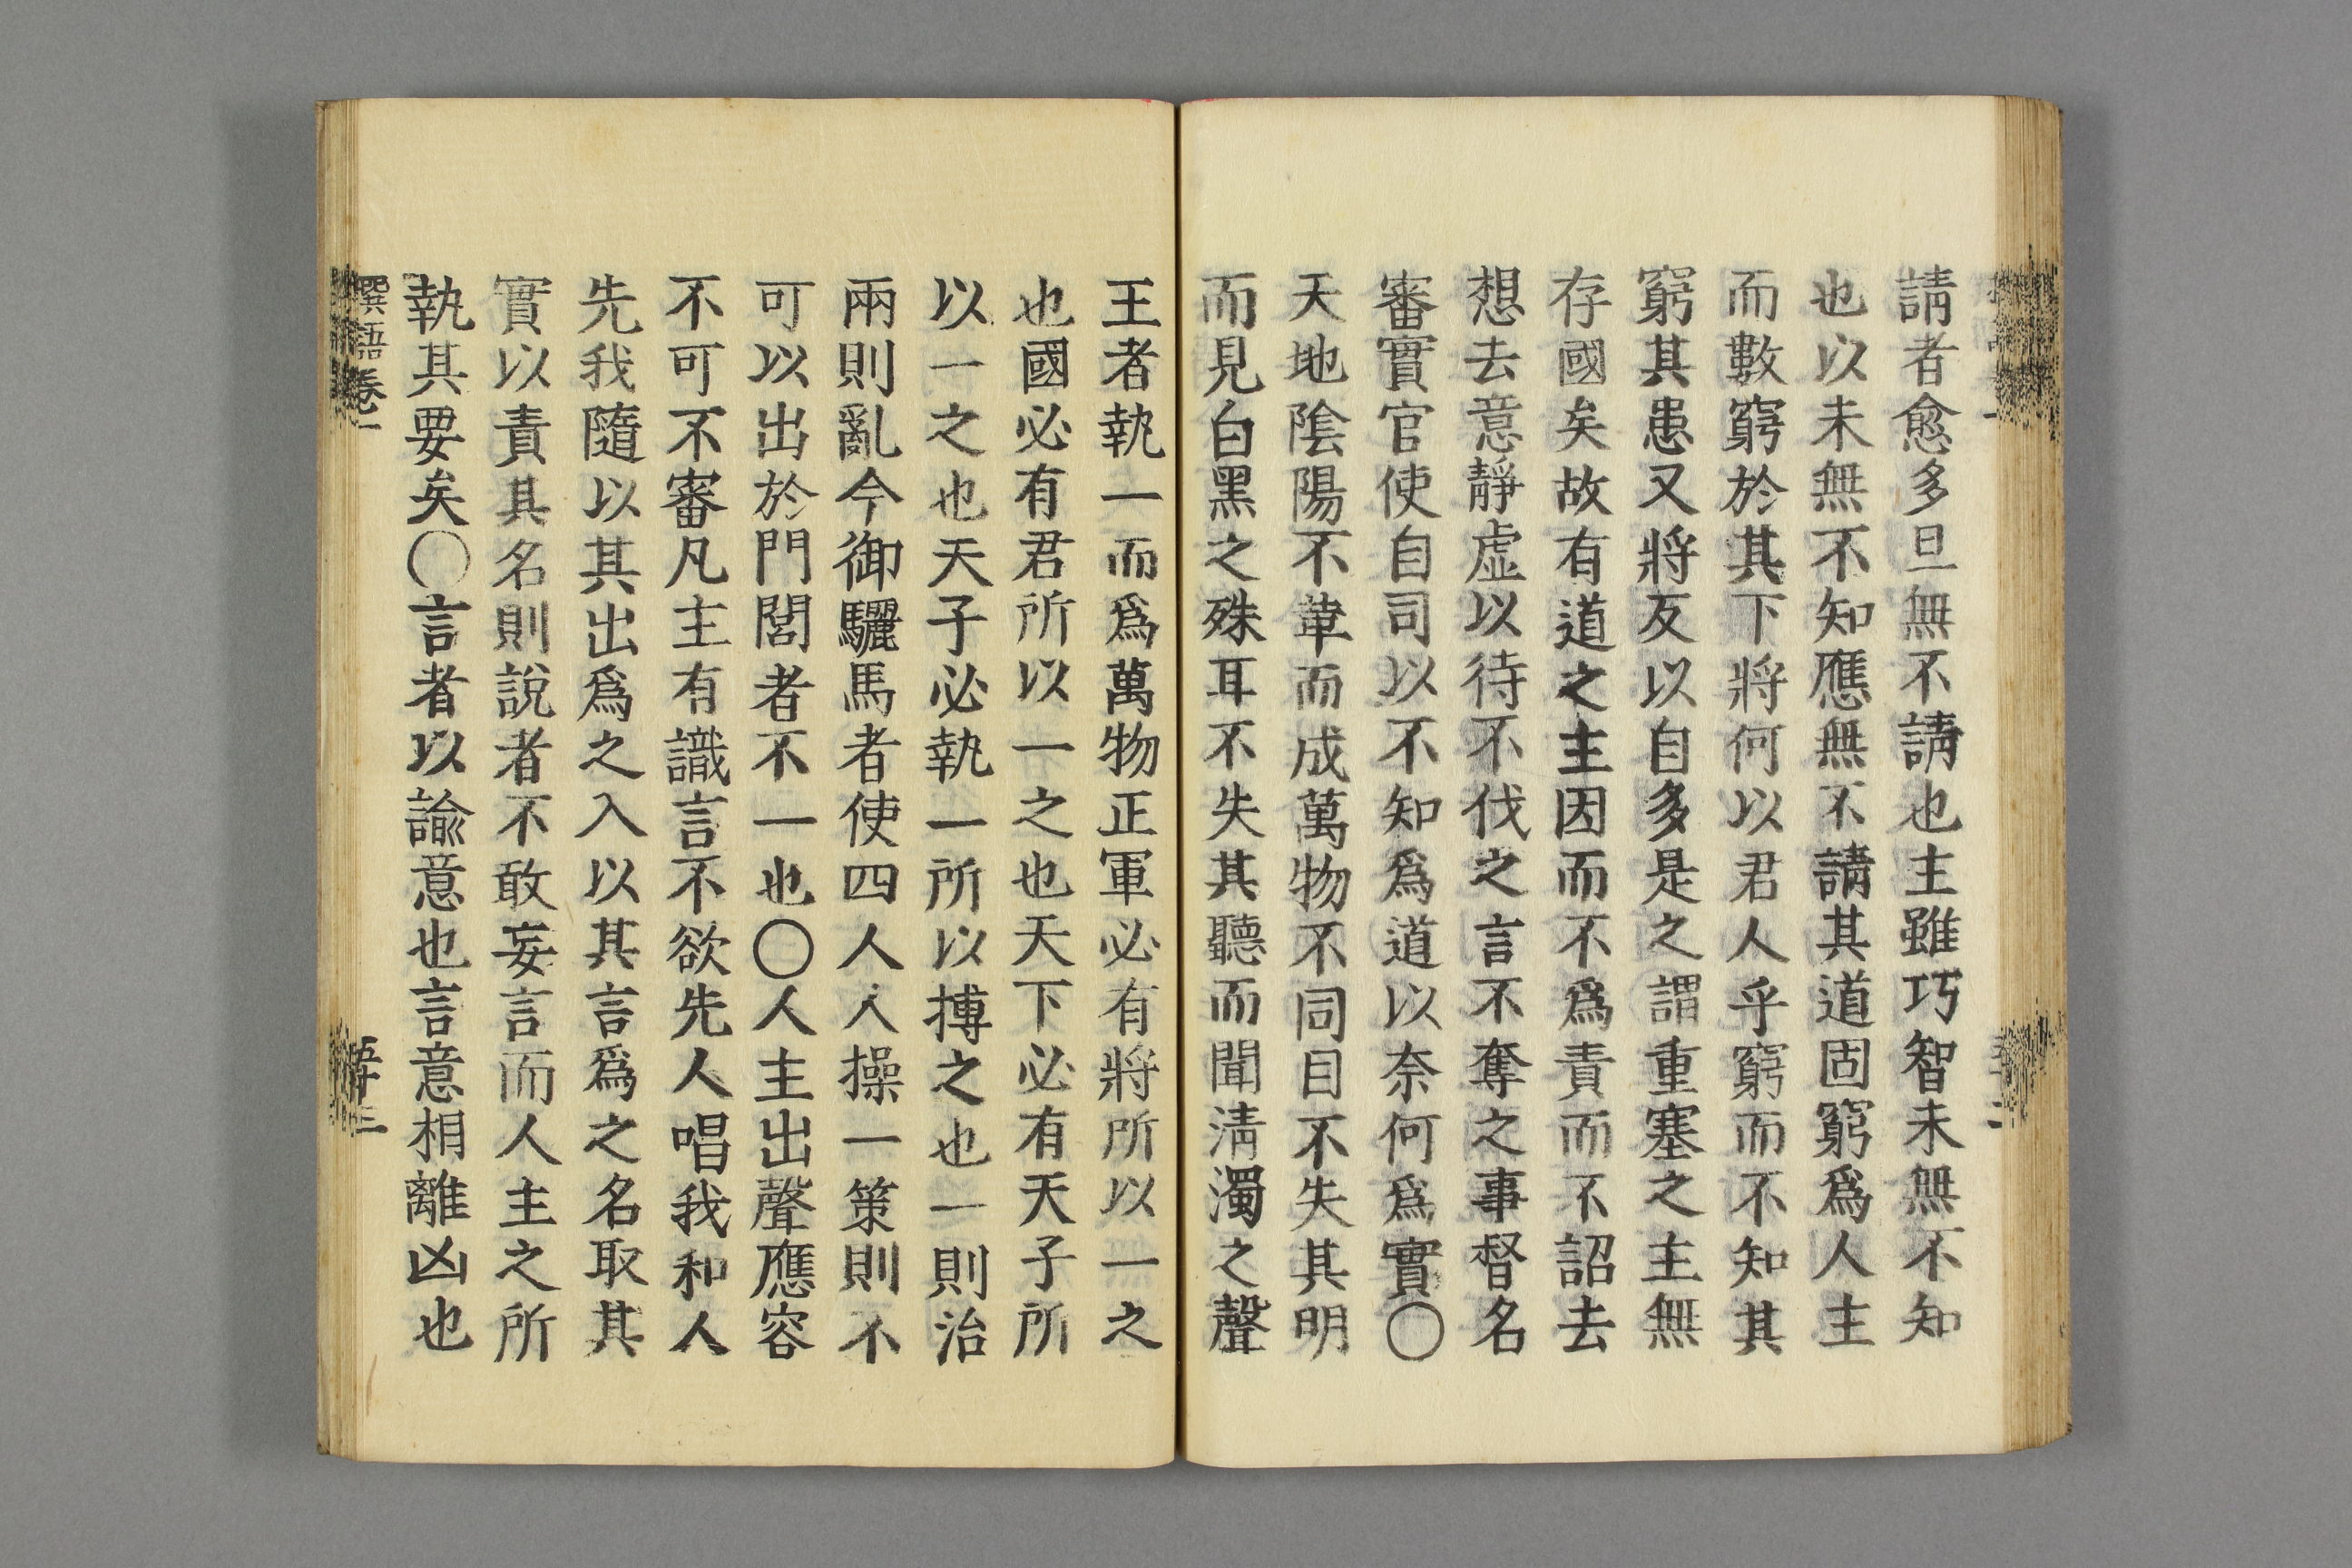 請者愈多旦無不請也主雖巧智未無不知
也以未無不知應無不請其道固窮爲人主
而數窮於其下將何以君人乎窮而不知其
窮其患又將反以自多是之謂重塞之主無
存國矣故有道之主因而不爲責而不詔去
想去意靜虛以待不伐之言不奪之事督名
審實官使自司以不知爲道以奈何爲實〇
天地陰陽不革而成萬物不同目不失其明
而見白黑之殊耳不失其聽而聞淸濁之聲
王者執一而爲萬物正軍必有將所以一之
也國必有君所以一之也天下必有天子所
以一之也天子必執一所以摶之也一則治
兩則亂今御驪馬者使四人人操一策則不
可以出於門閭者不一也〇人主出聲應容
不可不審凡主有識言不欲先人唱我和人
先我隨以其出爲之入以其言爲之名取其
實以責其名則說者不敢妄言而人主之所
執其要矣〇言者以諭意也言意相離凶也
語卷一